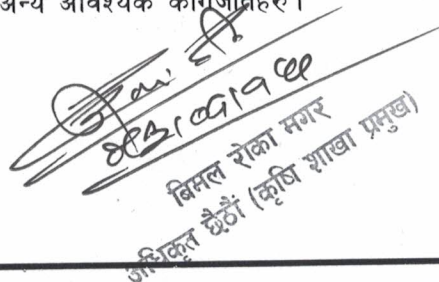 अन्य आवश्यक कागजातहरु।
बिमल रोका मगर
अधिकृत छैठौं (कृषि शाखा प्रमुख)